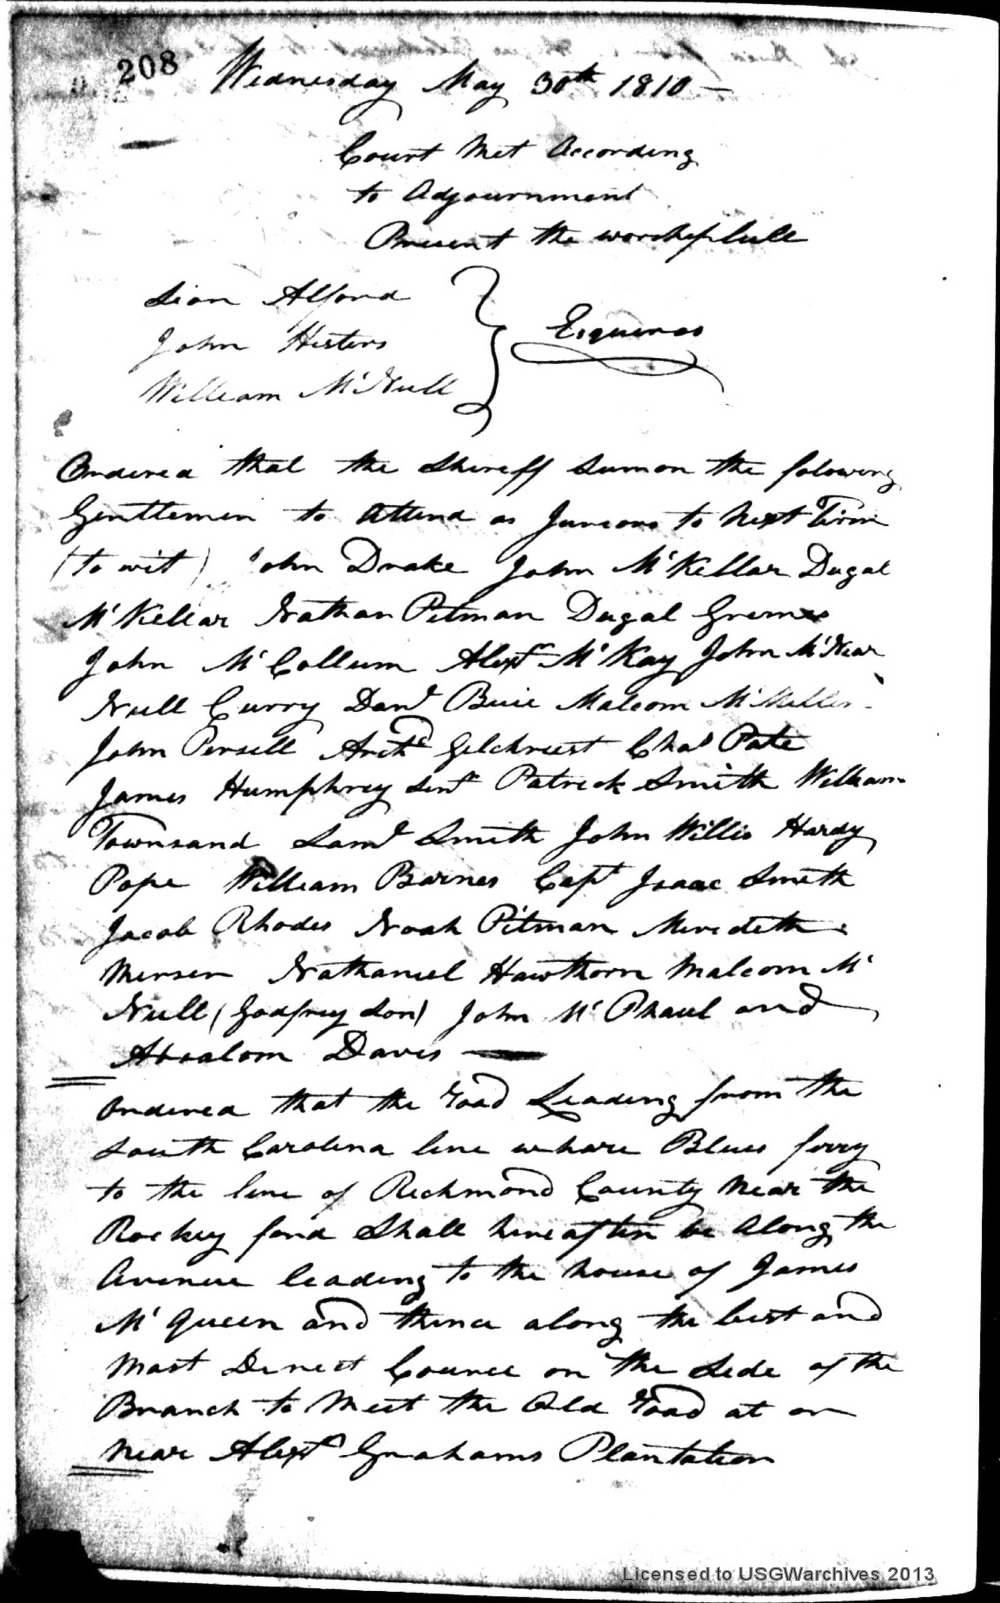 208
Wednesday May 30th 1810 —
Court Met According
to Adjournment
Present the worshipfull
Sion Alford
John Hesters
William McNeill
Esquires
Ordered that the Shereff Sumon the folowing
Gentlemen to Attend as Jurrors to Next Term
(to wit) John Drake John McKellar Dugal
McKellar Nathan Pitman Dugal Grimes
John McCollum Alexr McKay John McNear
Neill Curry Danl Buie Malcom McMillen
John Pursell Archd Gilchriest Chas Pate
James Humphrey Senr Patrick Smith William
Townsand Saml Smith John Willis Hardy
Pope William Barnes Capt Isaac Smith
Jacob Rhodes Noah Pitman Merideth
Merser Nathaniel Hawthorn Malcom Mc
Neill (Godfrey Son) John McPhaul and
Absalom Davis —
Ordered that the road Leading from the
South Carolina line whare Blues ferry
to the line of Richmond County Near the
Rockey ford Shall hereafter be Along the
Avenue leading to the house of James
McQueen and thence along the best and
Most Derect Cource on the Side of the
Branch to Meet the Old road at or
Near Alexr Grahams Plantation
Licensed to USGWarchives 2013